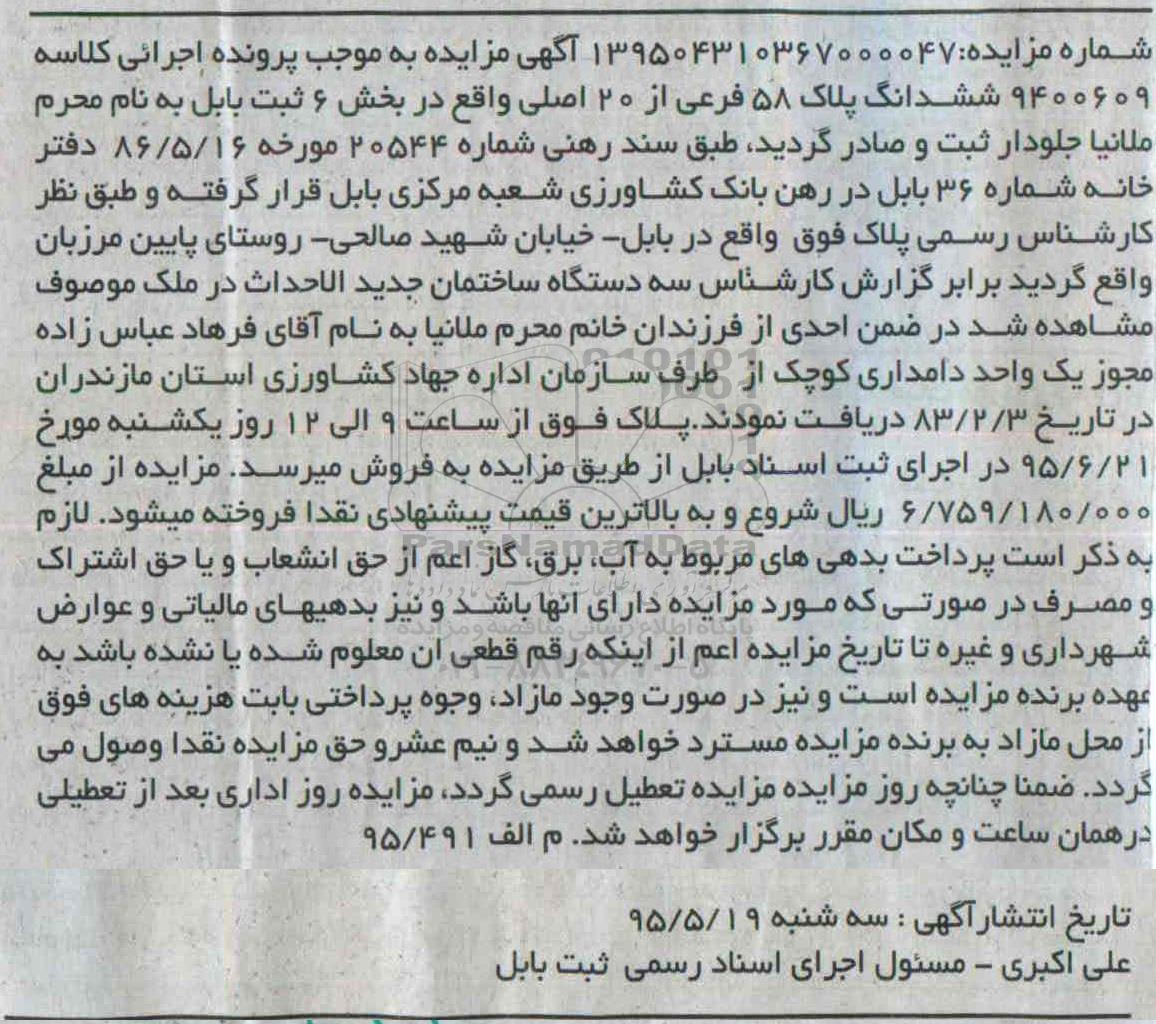 شماره مزایده:۱۳۹۵۰۴۳۱۰۳۶۷۰۰۰۰۴۷ آگهی مزایده به موجب پرونده اجرائی کلاسه
۹۴۰۰۶۰۹ ششدانگ پلاک ۵۸ فرعی از ۲۰ اصلی واقع در بخش ۶ ثبت بابل به نام محرم
ملانیا جلودار ثبت و صادر گردید، طبق سند رهنی شماره ۲۰۵۴۴ مورخه ۸۶/۵/۱۶ دفتر
خانه شماره ۳۶ بابل در رهن بانک کشاورزی شعبه مرکزی بابل قرار گرفته و طبق نظر
کارشناس رسمی پلاک فوق واقع در بابل- خیابان شهید صالحی- روستای پایین مرزبان
واقع گردید برابر گزارش کارشناس سه دستگاه ساختمان جدید الاحداث در ملک موصوف
مشاهده شد در ضمن احدی از فرزندان خانم محرم ملانیا به نام آقای فرهاد عباس زاده
مجوز یک واحد دامداری کوچک از طرف سازمان اداره جهاد کشاورزی استان مازندران
در تاریخ ۸۳/۲/۳ دریافت نمودند.پلاک فوق از ساعت ۹ الی ۱۲ روز یکشنبه مورخ
۹۵/۶/۲۱ در اجرای ثبت اسناد بابل از طریق مزایده به فروش میرسد. مزایده از مبلغ
۶/۷۵۹/۱۸۰/۰۰۰ ریال شروع و به بالاترین قیمت پیشنهادی نقدا فروخته میشود. لازم
به ذکر است پرداخت بدهی های مربوط به آب، برق، گاز اعم از حق انشعاب و یا حق اشتراک
و مصرف در صورتی که مورد مزایده دارای انها باشد و نیز بدهیهای مالیاتی و عوارض
شهرداری و غیره تا تاریخ مزایده اعم از اینکه رقم قطعی ان معلوم شده یا نشده باشد به
عهده برنده مزایده است و نیز در صورت وجود مازاد، وجوه پرداختی بابت هزینه های فوق
از محل مازاد به برنده مزایده مسترد خواهد شد و نیم عشرو حق مزایده نقدا وصول می
گردد. ضمنا چنانچه روز مزایده مزایده تعطیل رسمی گردد، مزایده روز اداری بعد از تعطیلی
درهمان ساعت و مکان مقرر برگزار خواهد شد. م الف ۹۵/۴۹۱
تاریخ انتشارآگهی : سه شنبه ۹۵/۵/۱۹
علی اکبری - مسئول اجرای اسناد رسمی ثبت بابل
ParsNamadData
پایگاه اطلاع رسانی مناقصه و مزایده